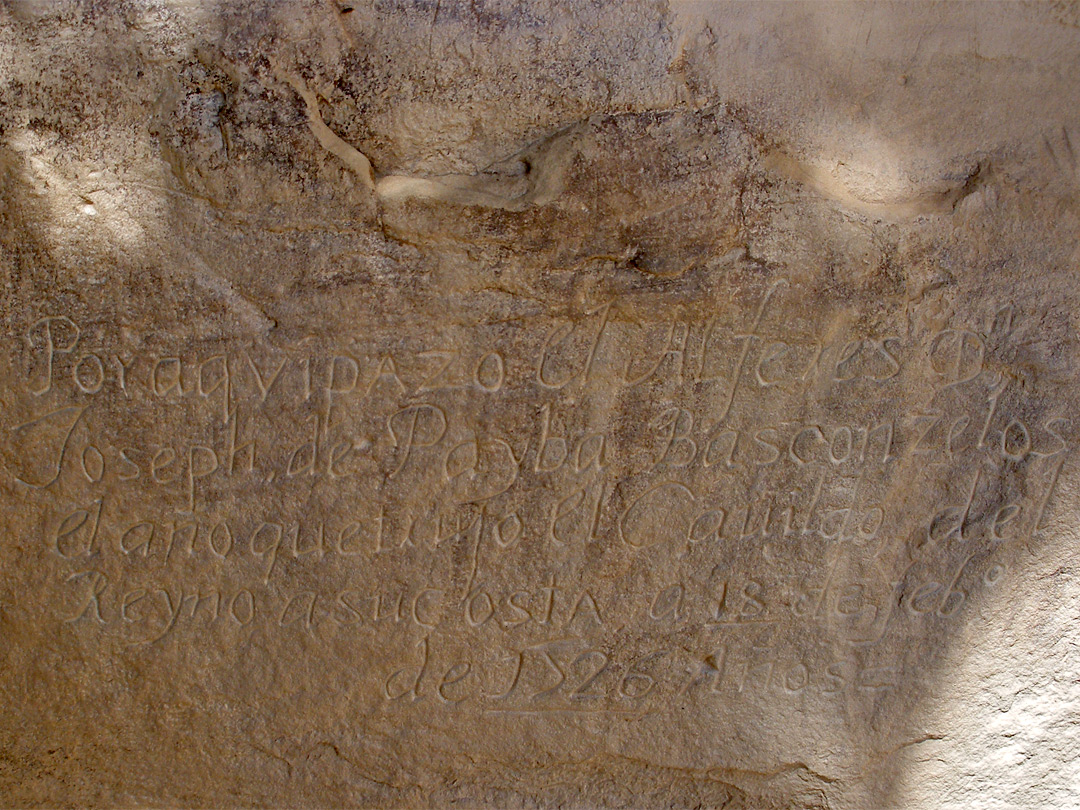 Por aqvi pazo el Alferes Dⁿ
Joseph de Payba Basconzelos
el año que tujo el Cauildo del
Reyno a su costa a 18 de feb°
de 1526 Años